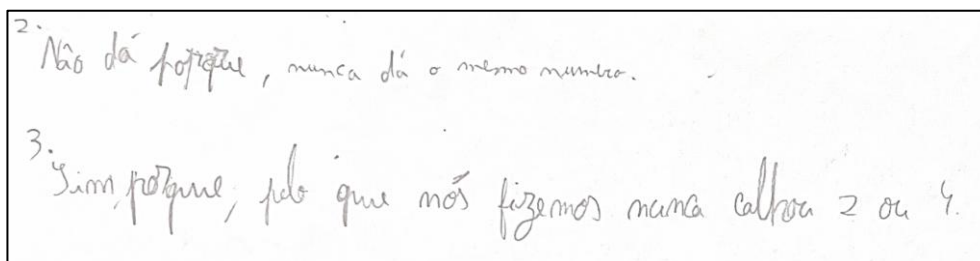 2.
Não dá porque, nunca dá o mesmo numero.
3.
Sim, porque, pelo que nós fizemos nunca calhou 2 ou 4.